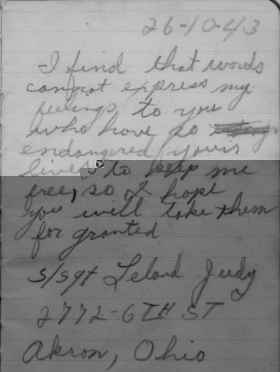 26-10-43
I find that words
cannot express my
feelings, to you
who have so
endangered yours
lives to keep me
free, so I hope
you will take them
for granted
S/Sgt Leland Judy
2772-6TH ST
Akron, Ohio